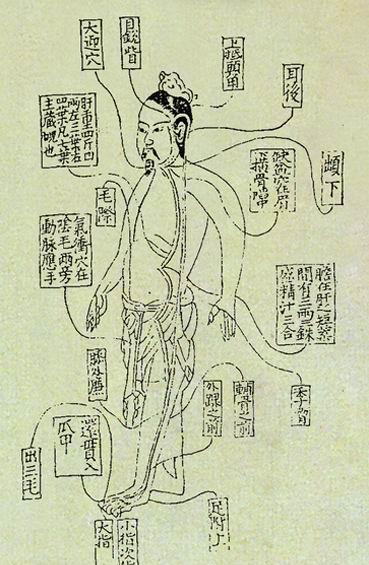 目銳眥
大迎穴
上抵頭角
耳後
肝重四斤四
兩左三葉右
四葉凡七葉
主藏魂也
缺盆穴在肩
橫骨陷
下
毛際
氣衝穴在
陰毛兩旁
動脉應手
膽在肝之短葉
間有三兩三銖
盛精汁三合
季脅
膝外廉
輔骨之前
外踝之前
還貫入
爪甲
出三毛
足跗上
小指次指
大指